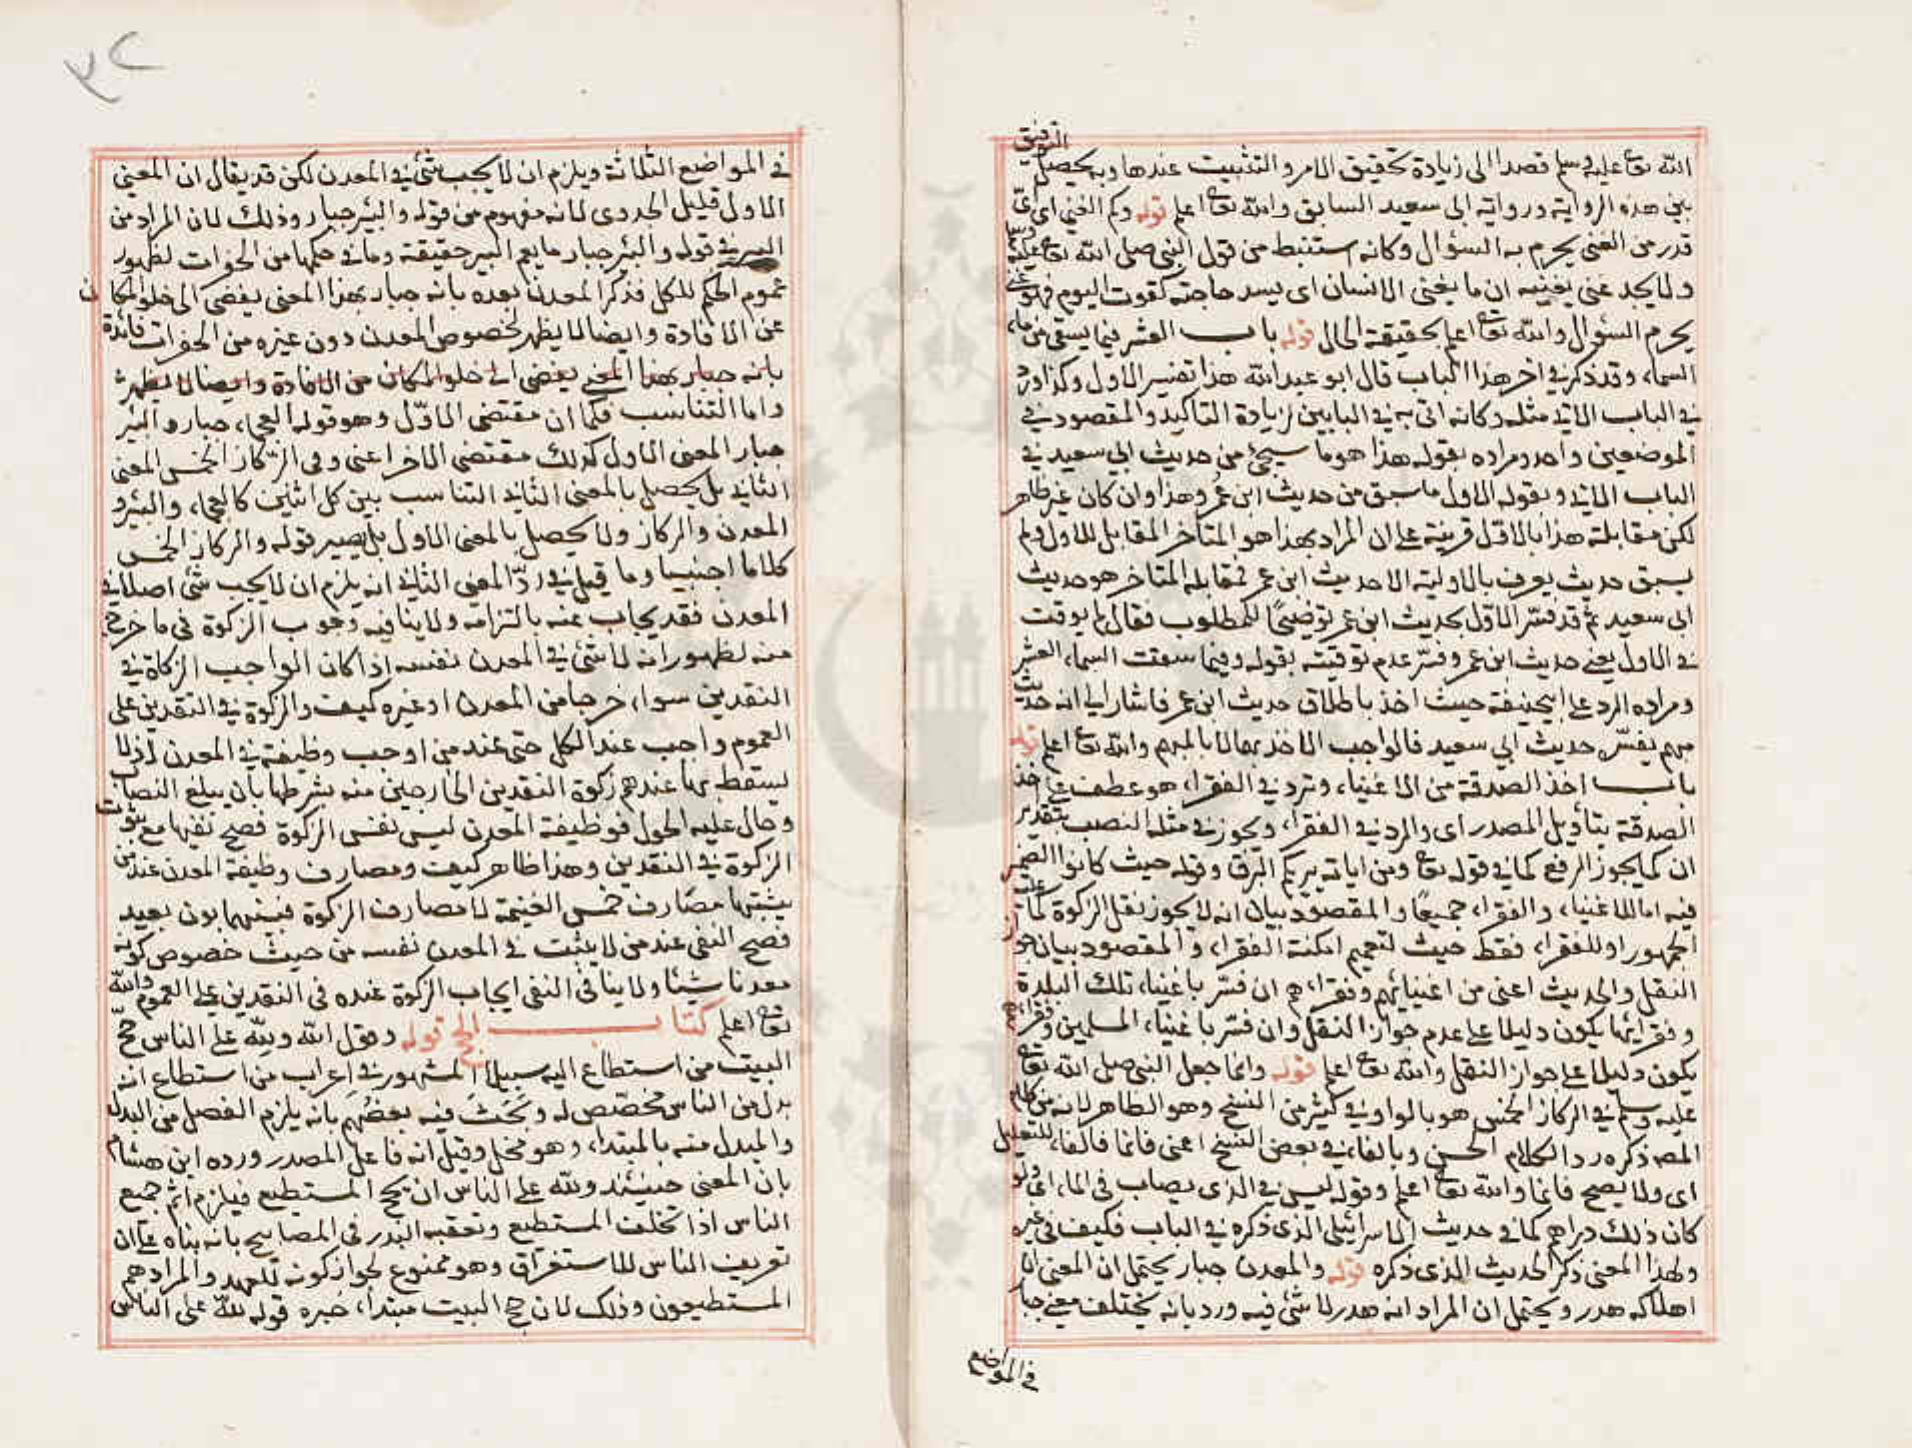 الله تع عليه وسلم قصدا الى زيادة تحقيق الامر والتثبيت عندها وبه يحصل التوفيق
بين هذه الرواية ورواية ابى سعيد السابق والله تع اعلم قوله وكم الغنى اى اى
قدر من الغنى يحرم به السؤال وكانه استنبط من قول النبى صلى الله تع عليه وسلم
ولا يجد غنى يغنيه ان ما يغنى الانسان اى يسد حاجته كقوت اليوم فهو غنى
يحرم السؤال والله تع اعلم بحقيقة الحال قوله باب العشر فيما يسقى من ماء
السماء وقد ذكر فى اخر هذا الباب قال ابو عبد الله هذا تفسير الاول وكذا ورد
فى الباب الاتى مثله وكانه اتى به فى البابين لزيادة التاكيد والمقصود فى
الموضعين واحد ومراده بقوله هذا هو ما سيجئ من حديث ابي سعيد فى
الباب الاتى وبقوله الاول ما سبق من حديث ابن عمر وهذا وان كان غير ظاهر
لكن مقابلة هذا بالاول قرينة على ان المراد بهذا هو المتأخر المقابل للاول ولم
يسبق حديث يعرف بالاولية الا حديث ابن عمر فمقابله المتاخر هو حديث
ابى سعيد ثم قد فسّر الاوّل بحديث ابن عمر توضيحًا للمطلوب فقال لم يوقت
فى الاول يعنى حديث ابن عمر وفسّر عدم توقيته بقوله وفيما سقت السماء العشر
ومراده الرد على ابيحنيفة حيث اخذ باطلاق حديث ابن عمر فاشار الى انه حديث
مبهم يفسّر حديث ابي سعيد فالواجب الاخذ به لا بالمبهم والله تع اعلم قوله
باب اخذ الصدقة من الاغنياء وترد فى الفقراء هو عطف على اخذ
الصدقة بتأويل المصدر اى والرد فى الفقراء ويجوز فى مثله النصب بتقدير
ان كما يجوز الرفع كما فى قوله تع ومن اياته يريكم البرق وقوله حيث كانوا الضمير
فيه اما للاغنياء والفقراء جميعًا والمقصود بيان انه لا يجوز نقل الزكوة كما عليه
الجمهور او للفقراء فقط حيث لتعميم امكنة الفقراء والمقصود بيان جواز
النقل والحديث اعنى من اغنيائهم وفقرائهم ان فسّر باغنياء تلك البلدة
وفقرائها يكون دليلا على عدم جواز النقل وان فسّر باغنياء المسلمين وفقرائهم
يكون دليلا على جواز النقل والله تع اعلم قوله وانما جعل النبى صلى الله تع
عليه وسلم فى الركاز الخمس هو بالواو فى كثير من النسخ وهو الظاهر لانه من كلام
المصه ذكره رد الكلام الحسن وبالفاء فى بعض النسخ اعنى فانما فالفاء للتعليل
اى ولا يصح فانما والله تع اعلم وقوله ليس فى الذى يصاب فى الماء اى ولو
كان ذلك دراهم كما فى حديث الاسرائيلى الذى ذكره فى الباب فكيف فى غيره
ولهذا المعنى ذكر الحديث الذى ذكره قوله والمعدن جبار يحتمل ان المعنى ان
اهلاكه هدر ويحتمل ان المراد انه هدر لا شئ فيه ورد بانه يختلف معنى جبار
فى المواضع
فى المواضع الثلاثة ويلزم ان لا يجب شئ فى المعدن لكن قد يقال ان المعنى
الاول قليل الجدوى لانه مفهوم من قوله والبئر جبار وذلك لان المراد من
البير فى قوله والبئر جبار ما يعم البير حقيقة وما فى حكمها من الحفرات لظهور
عموم الحكم للكل فذكر المعدن بعده بانه جبار بهذا المعنى يفضى الى خلو الكلام ن
عن الافادة وايضا لا يظهر لخصوص المعدن دون غيره من الحفرات فائدة
بانه جبار بهذا المعنى يفضى الى خلو المكان من الافادة وايضا لا يظهر
واما التناسب فكما ان مقتضى الاوّل وهو قوله العجماء جبار والبئر
جبار المعنى الاول كذلك مقتضى الاخر اعنى وفى الركاز الخمس المعنى
الثانى بل يحصل بالمعنى الثانى التناسب بين كل اثنين كالعجماء والبئر و
المعدن والركاز ولا يحصل بالمعنى الاول بل يصير قوله والركاز الخمس
كلاما اجنبيا وما قيل فى ردّ المعنى الثانى انه يلزم ان لا يجب شئ اصلا فى
المعدن فقد يجاب عنه بالتزامه ولا ينافيه وجوب الزكوة فى ما خرج
منه لظهور انه لا شئ فى المعدن نفسه اذا كان الواجب الزكاة فى
النقدين سواء خرجا من المعدن او غيره كيف والزكوة فى النقدين على
العموم واجب عند الكل حتى عند من اوجب وظيفة فى المعدن اذ لا
يسقط بها عندهم زكوة النقدين الخارجين منه بشرطها بان يبلغ النصاب
وحال عليه الحول فوظيفة المعدن ليس نفس الزكوة فصح نفيها مع ثبوت
الزكوة فى النقدين وهذا ظاهر كيف ومصارف وظيفة المعدن عند من
يثبتها مصارف خمس الغنيمة لا مصارف الزكوة فبينهما بون بعيد
فصح النفى عند من لا يثبت فى المعدن نفسه من حيث خصوص كونه
معدنا شيئا ولا ينافى النفى ايجاب الزكوة عنده فى النقدين على العموم والله
تع اعلم كتاب الحج قوله وقول الله ولله على الناس حجّ
البيت من استطاع اليه سبيلا المشهور فى اعراب من استطاع انه
بدل من الناس مخصّص له وبحث فيه بعضهم بانه يلزم الفصل من البدل
والمبدل منه بالمبتداء وهو مخل وقيل انه فاعل المصدر ورده ابن هشام
بان المعنى حينئذ ولله على الناس ان يحج المستطيع فيلزم اثم جميع
الناس اذا تخلف المستطيع وتعقبه البدر فى المصابيح بانه بناه على ان
تعريف الناس للاستغراق وهو ممنوع لجواز كونه للعهد والمراد هم
المستطيعون وذلك لان حج البيت مبتدأ خبره قوله لله على الناس